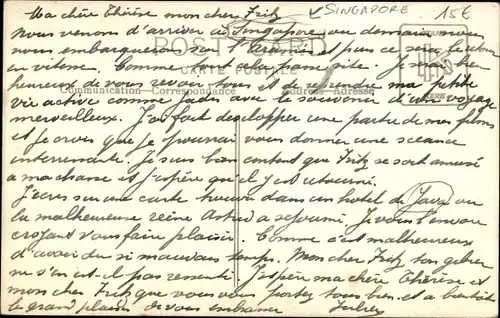 Ma chère Thérèse mon cher Fritz
SINGAPORE
15€
Nous venons d'arriver à Singapore ou demain nous
nous embarquerons sur l' et puis ce sera le retour
en vitesse. Comme tout cela passe vite. Je serai bien
heureux de vous revoir tous et de reprendre ma petite
vie active comme jadis avec le souvenir d'un voyage
merveilleux. J'ai fait développer une partie de mes films
et je crois que je pourrai vous donner une séance
intéressante. Je suis bien content que Fritz se soit amusé
à ma chasse et j'espère qu'il y est retourné.
J'écris sur une carte trouvée dans un hotel de Java ou
la malheureuse reine Astrid a séjourné. Je vous l'envoie
croyant vous faire plaisir. Comme c'est malheureux
d'avoir du si mauvais temps. Mon cher Fritz ton gibier
ne s'en est-il pas ressenti. J'espère ma chère Thérèse et
mon cher Fritz que vous vous portez tous bien et a bientôt
le grand plaisir de vous embrasser
POST CARD
CARTE POSTALE
Communication-Correspondance
Address-Adresse